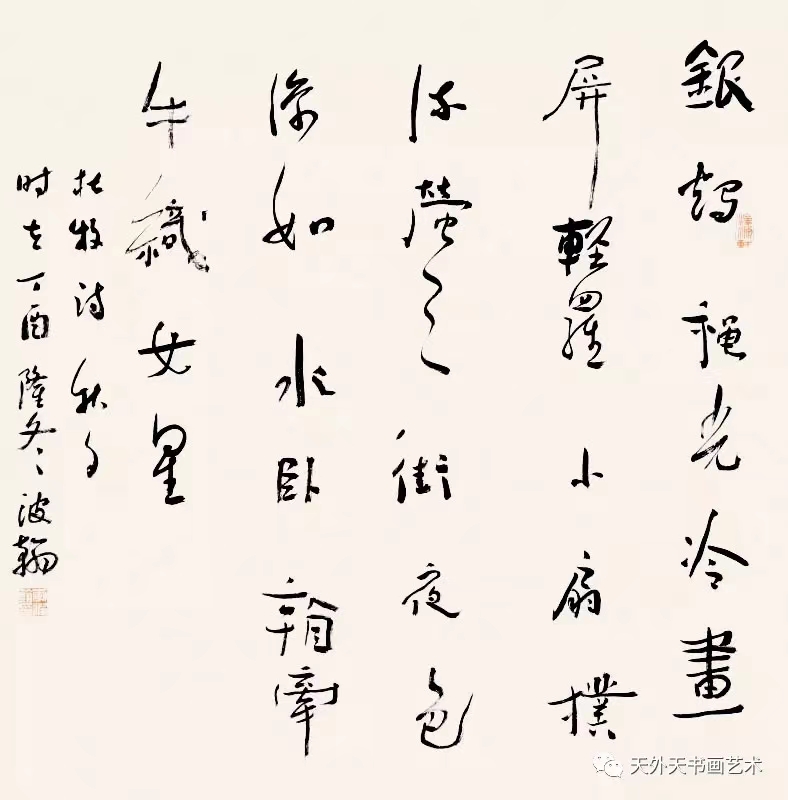 銀燭穐光冷畫
屏輕羅小扇撲
流螢天街夜色
涼如水臥看牽
牛織女星
杜牧诗秋夕
时在丁酉隆冬波翰
天外天书画艺术